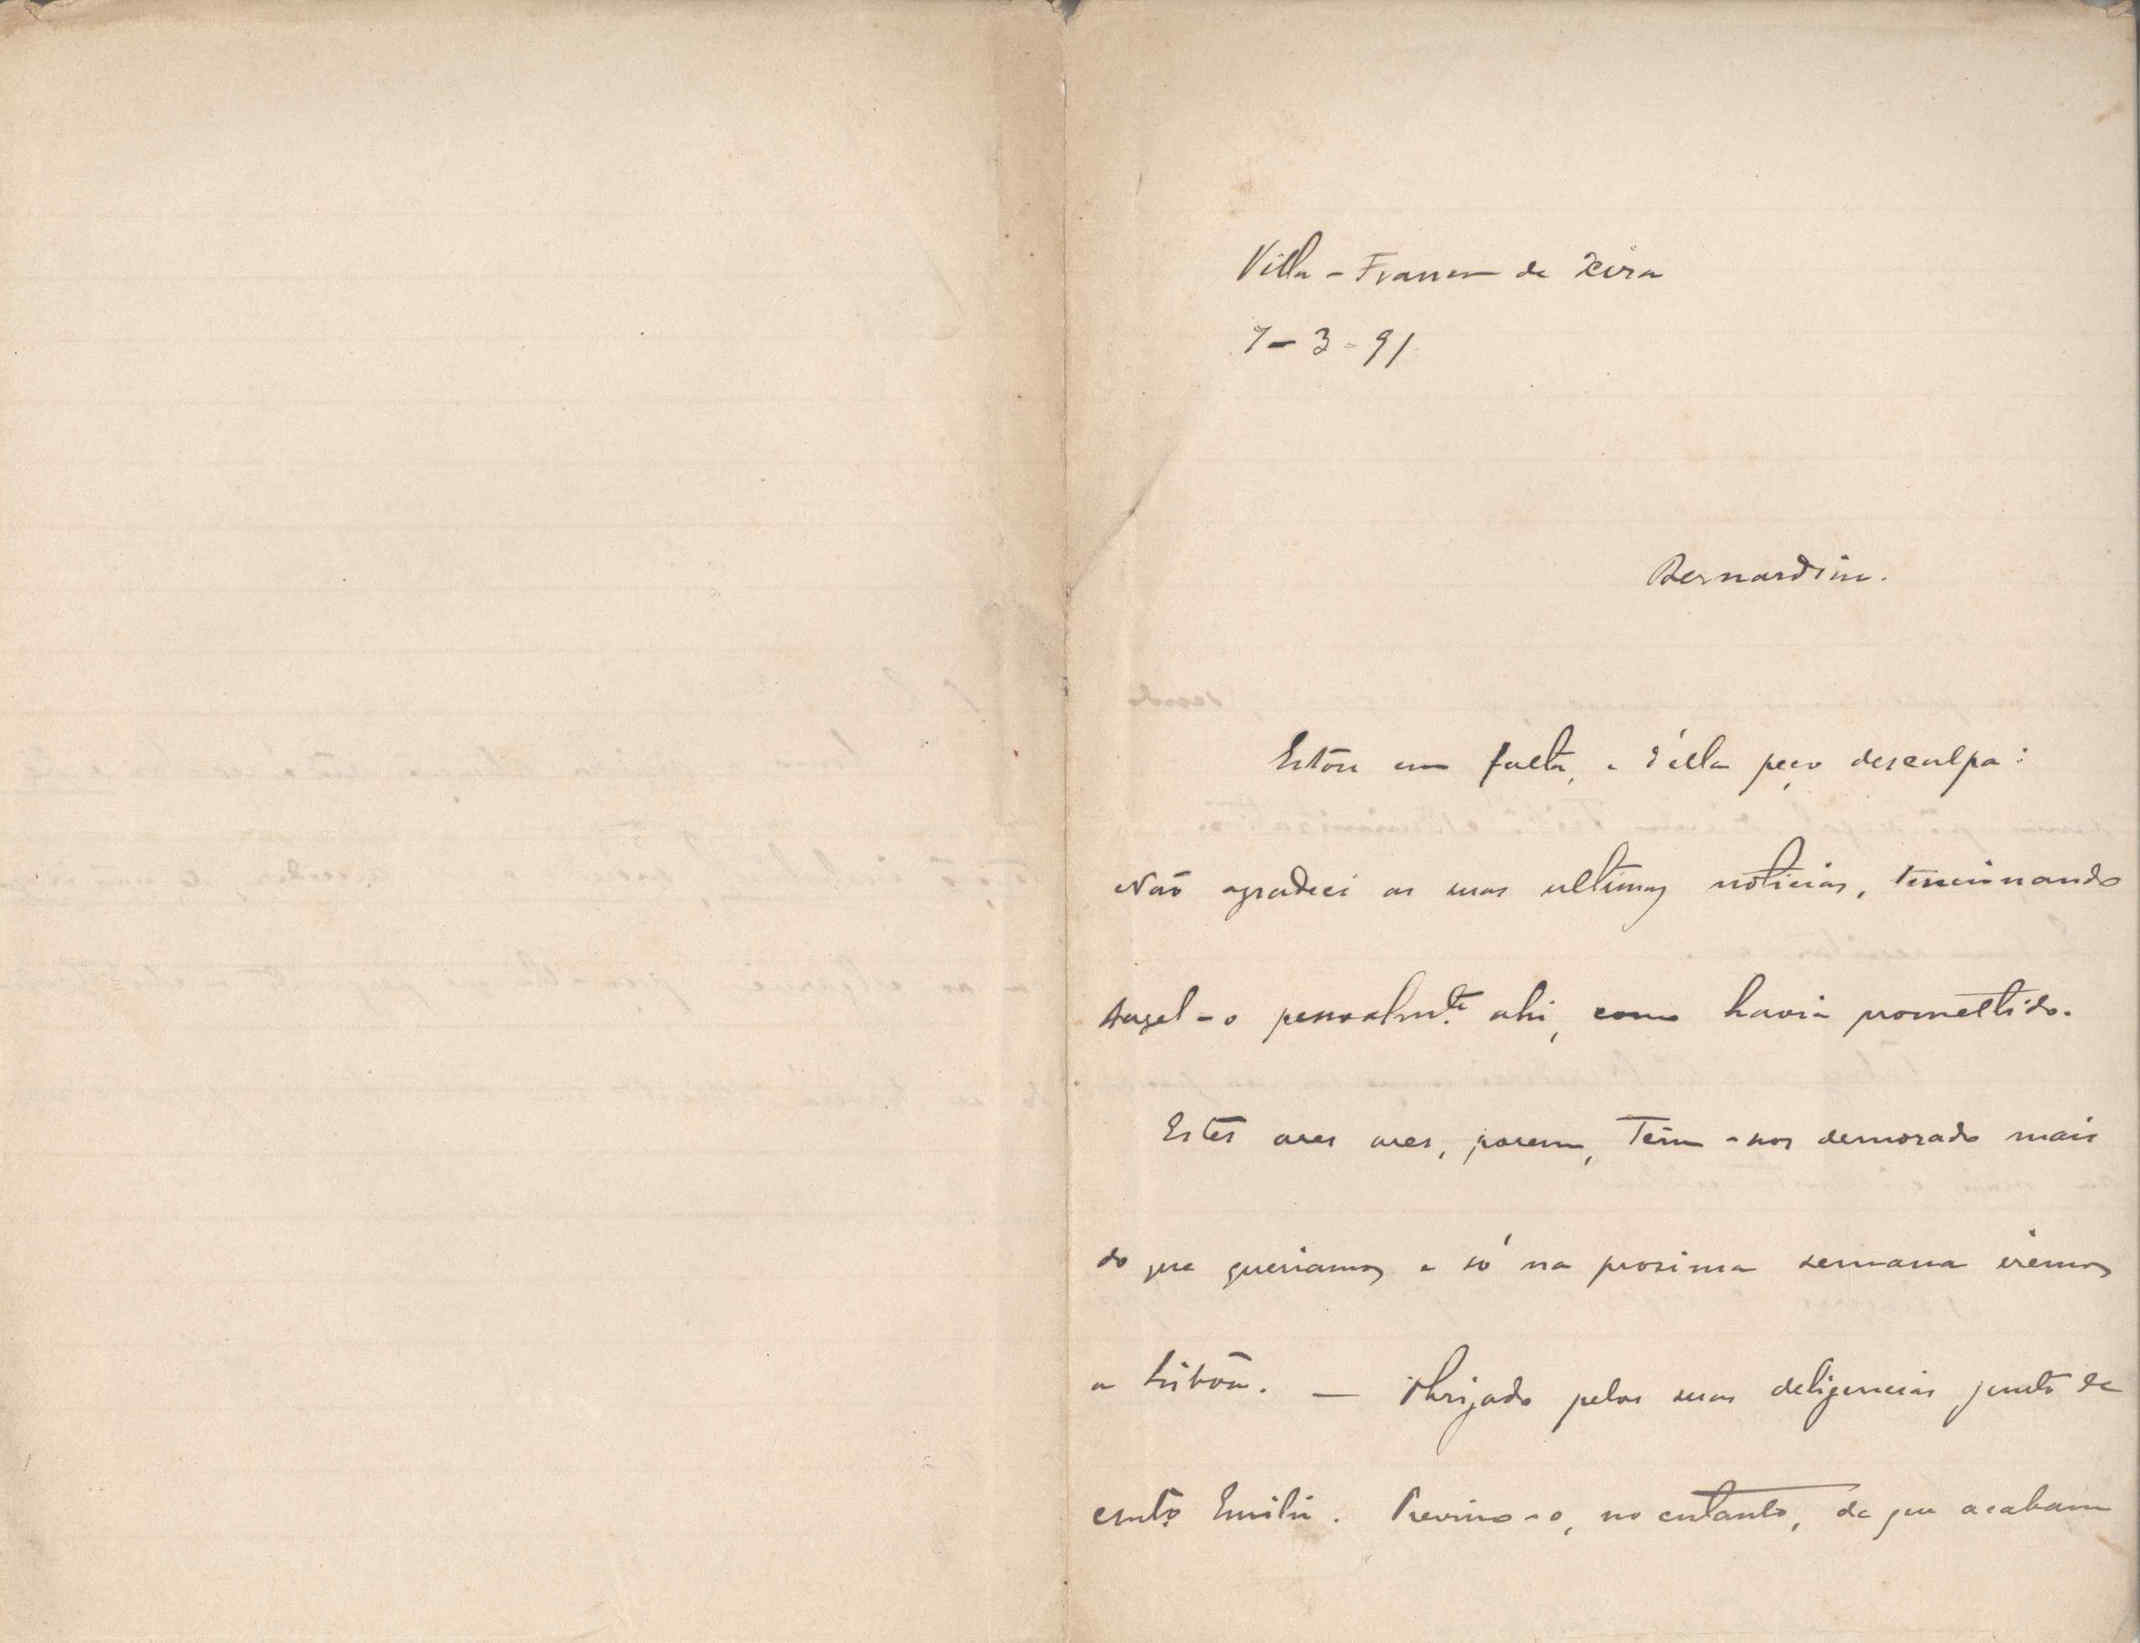 Villa-Franca de Xira
7-3-91
Bernardim.
Estou em falta, e d'ella peço desculpa:
Não agradeci as suas ultimas noticias, tencionando
fazel-o pessoalm.te ahi, como havia promettido.
Estes ares ares, porem, Têm-nos demorado mais
do que queriamos e só na proxima semana iremos
a Lisbôa. — Obrigado pelas suas deligencias junto de
Emilio. Previno-o, no entanto, de que acabam